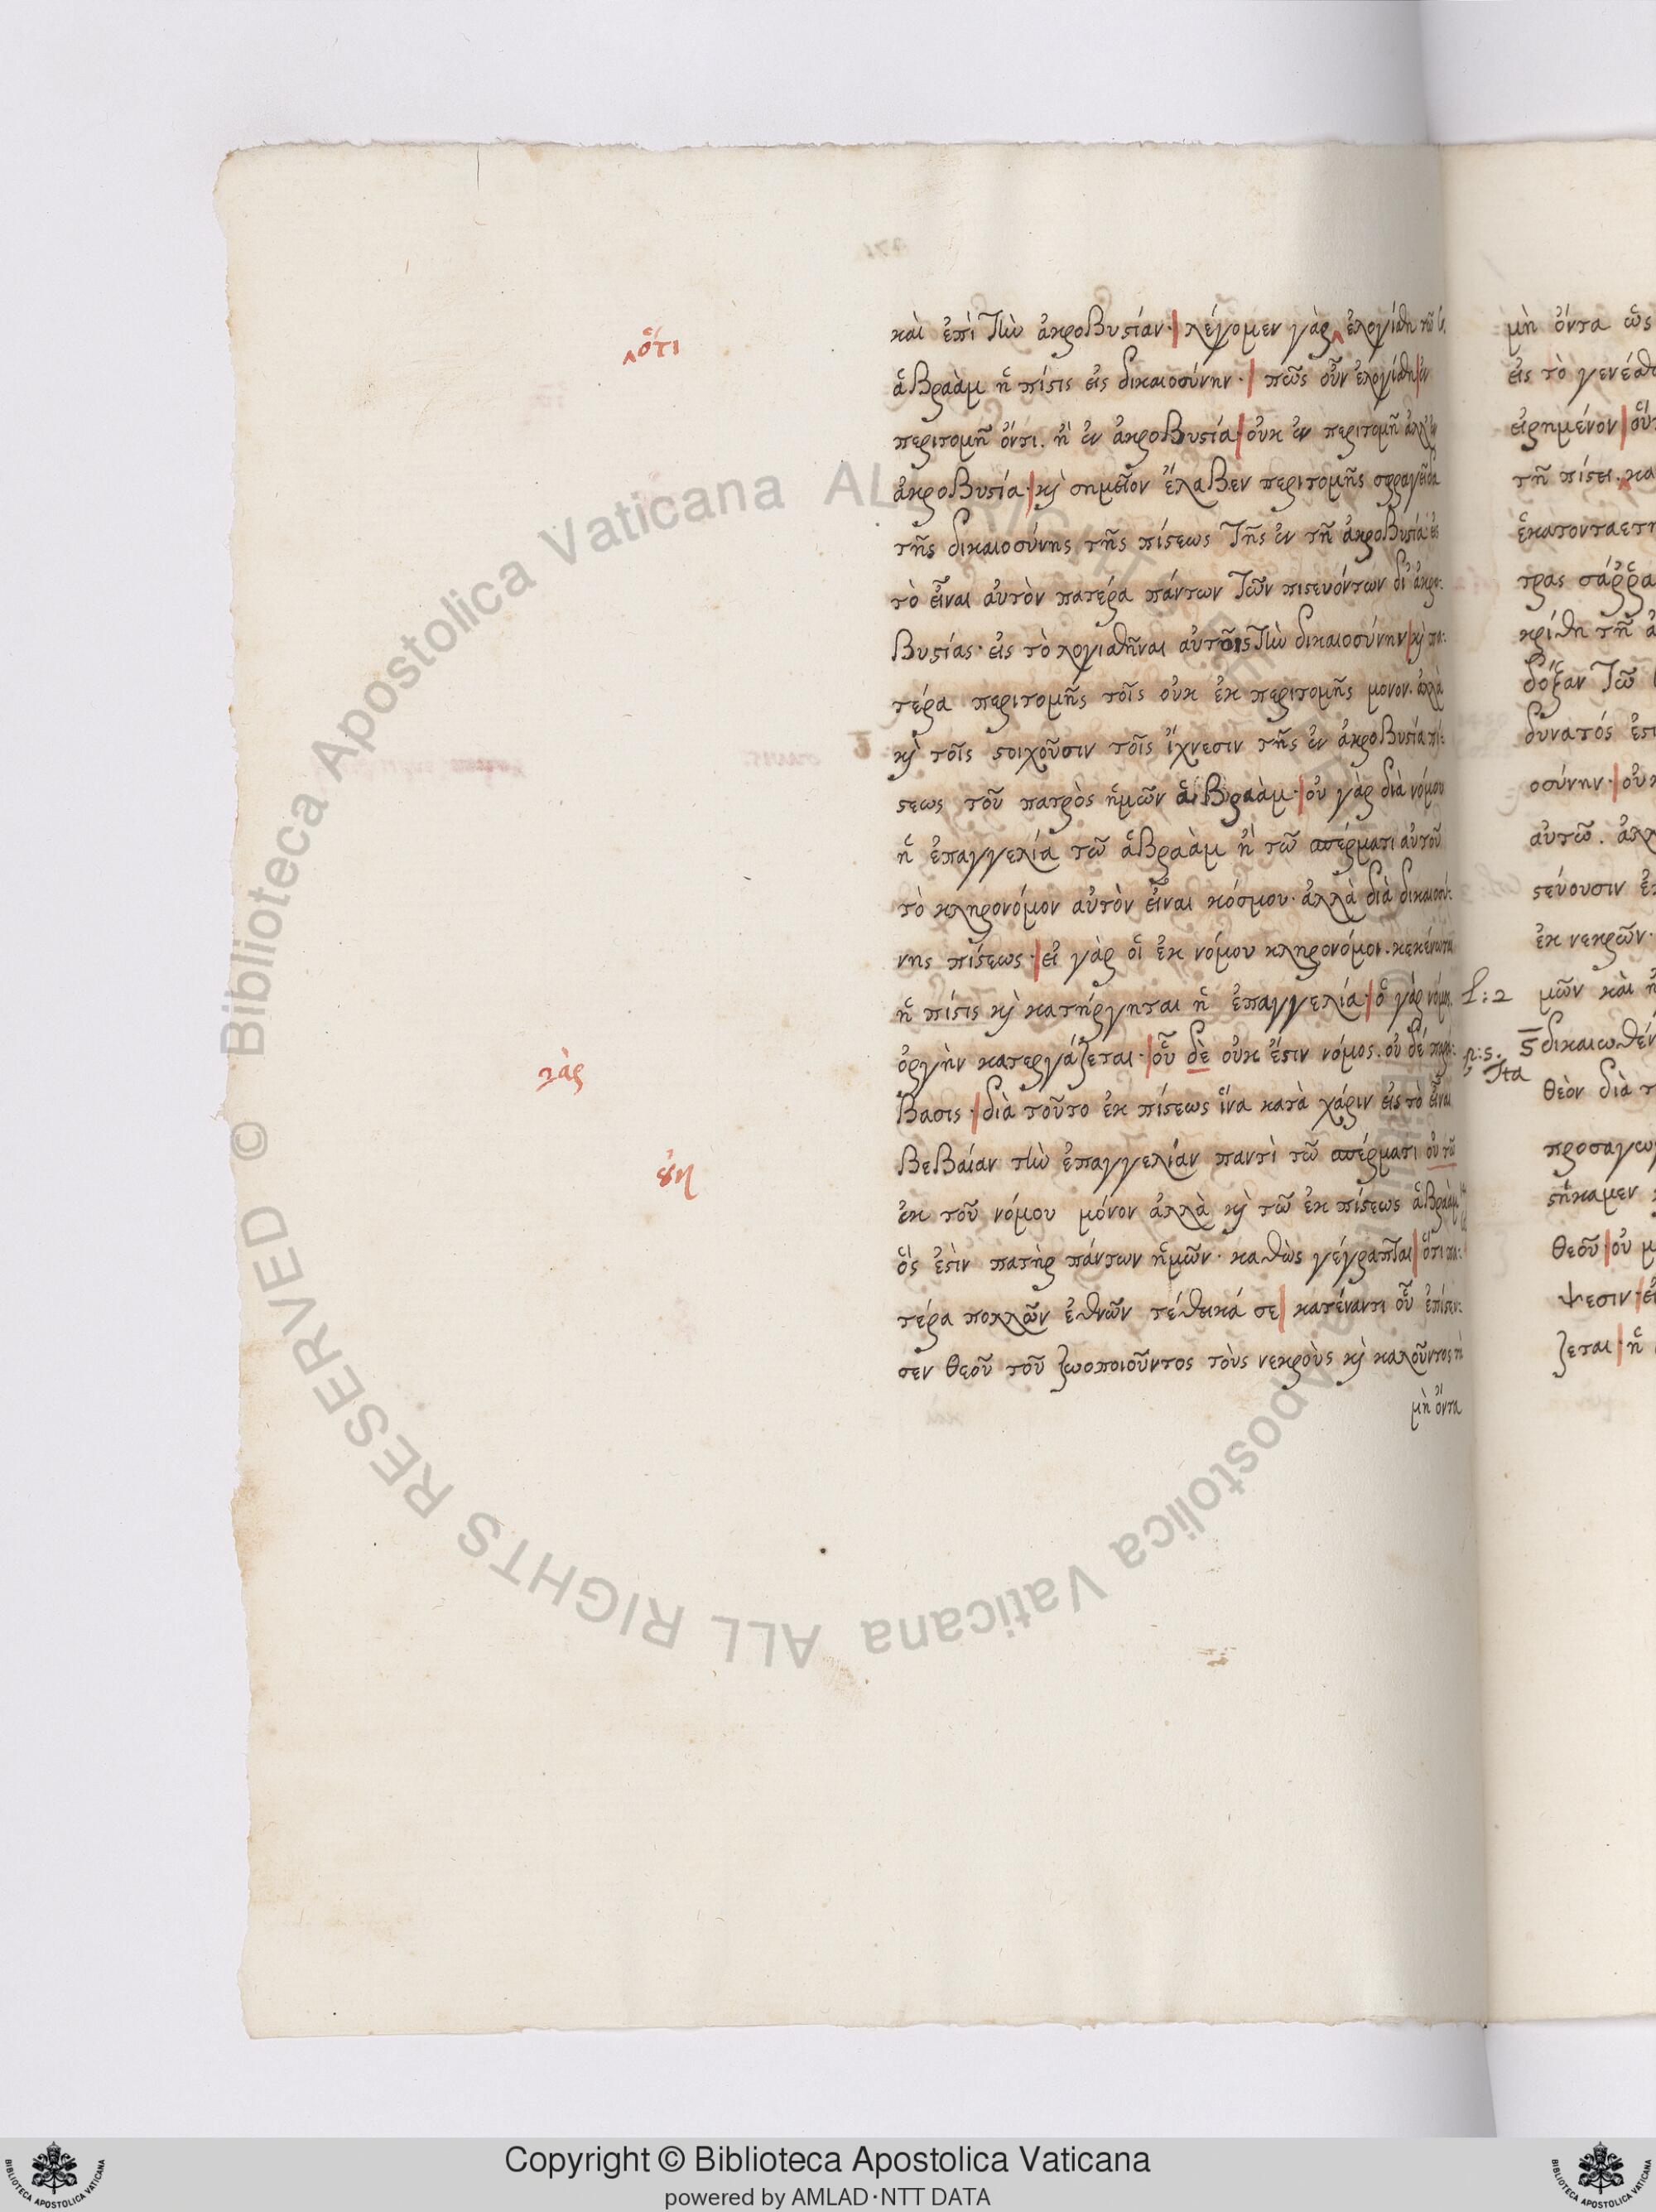 καὶ ἐπὶ τὴν ἀκροβυστίαν· λέγομεν γὰρ ‸ ἐλογίσθη τῶ
‸ ὅτι
ἁβραὰμ ἡ πίστις εἰς δικαιοσύνην· πῶς οὖν ἐλογίσθη ἐν
περιτομῇ ὄντι. ἢ ἐν ἀκροβυστία· οὐκ ἐν περιτομῇ ἀλλ' ἐν
ἀκροβυστία· κὶ σημεῖον ἔλαβεν περιτομῆς σφραγεῖδα
τῆς δικαιοσύνης τῆς πίστεως τῆς ἐν τῇ ἀκροβυστία· εἰς
τὸ εἶναι αὐτὸν πατέρα πάντων τῶν πιστευόντων δι' ἀκρο-
βυστίας· εἰς τὸ λογισθῆναι αὐτοῖς τὴν δικαιοσύνην κὶ πα-
τέρα περιτομῆς τοῖς οὐκ ἐκ περιτομῆς μονον. ἀλλὰ
κὶ τοῖς στοιχοῦσιν τοῖς ἴχνεσιν τῆς ἐν ἀκροβυστία πί-
στεως τοῦ πατρὸς ἡμῶν ἁβραάμ· οὐ γὰρ διὰ νόμου
ἡ ἐπαγγελία τῶ ἁβραὰμ ἢ τῶ σπέρματι αὐτοῦ
τὸ κληρονόμον αὐτὸν εἶναι κόσμου· ἀλλὰ διὰ δικαιοσύ-
νης πίστεως· εἰ γὰρ οἱ ἐκ νόμου κληρονόμοι. κεκένωται
ἡ πίστις κὶ κατήργηται ἡ ἐπαγγελία· ὁ γὰρ νόμος
ὀργὴν κατεργάζεται· οὗ δὲ οὐκ ἔστιν νόμος. οὐ δέ παρά-
γὰρ
βασις· διὰ τοῦτο ἐκ πίστεως ἵνα κατὰ χάριν εἰς τὸ εἶναι
βεβαίαν τὴν ἐπαγγελίαν παντὶ τῶ σπέρματι οὐ τῶ
ἐκ τοῦ νόμου μόνον ἀλλὰ κὶ τῶ ἐκ πίστεως ἁβραὰμ
ὅς ἐστὶν πατὴρ πάντων ἡμῶν· καθὼς γέγραπται ὅτι πα-
τέρα πολλῶν ἐθνῶν τέθεικά σε κατέναντι οὗ ἐπίστευ-
σεν θεοῦ τοῦ ζωοποιοῦντος τοὺς νεκροὺς κὶ καλοῦντος τὰ
μὴ ὄντα
μὴ ὄντα ὡς
εἰς τὸ γενέσθ
εἰρημένον οὕτ
τῇ πίστει κα
ἑκατονταετη
τρας σάῤῥα
κρίθη τῇ ἀ
δόξαν τῶ
δυνατός ἐστ
οσύνην· οὐκ
αὐτῶ. ἀλλ
στεύουσιν ἐπ
ἐκ νεκρῶν·
μῶν καὶ ἠ
5 δικαιωθέν
θεὸν διὰ τ
προσαγωγ
στήκαμεν
θεοῦ· οὐ μ
ψεσιν· εἰ
ζεται· ἡ
© Biblioteca Apostolica Vaticana ALL RIGHTS RESERVED
Copyright © Biblioteca Apostolica Vaticana
powered by AMLAD·NTT DATA
BIBLIOTECA APOSTOLICA VATICANA
BIBLIOTECA APOSTOLICA VATICANA